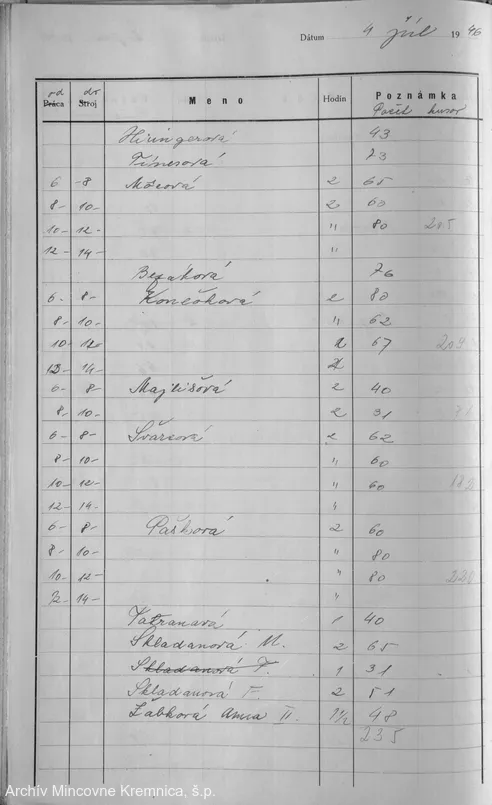 Dátum 4 júl 1946
od do
Práca Stroj Meno Hodín Poznámka
Počet kusov
43
Finesová 73
6 - 8 - Mócová 2 65
8 - 10 - 2 60
10 - 12 - " 80 205
12 - 14 - "
Bezáková 76
6 - 8 - Končoková 2 80
8 - 10 - " 62
10 - 12 - 2 67 209
12 - 14 -
6 - 8 - Majtišová 2 40
8 - 10 - 2 31 71
6 - 8 - Švarcová 2 62
8 - 10 - " 60
10 - 12 - " 60 182
12 - 14 - "
6 - 8 - Pašková 2 60
8 - 10 - " 80
10 - 12 - " 80 220
12 - 14 - "
Tatranavá 1 40
Skladanová M. 2 65
Skladanová F. 1 31
Skladanová F. 2 51
Žabková Anna II. 1 1/2 48
235
Archív Mincovne Kremnica, š.p.